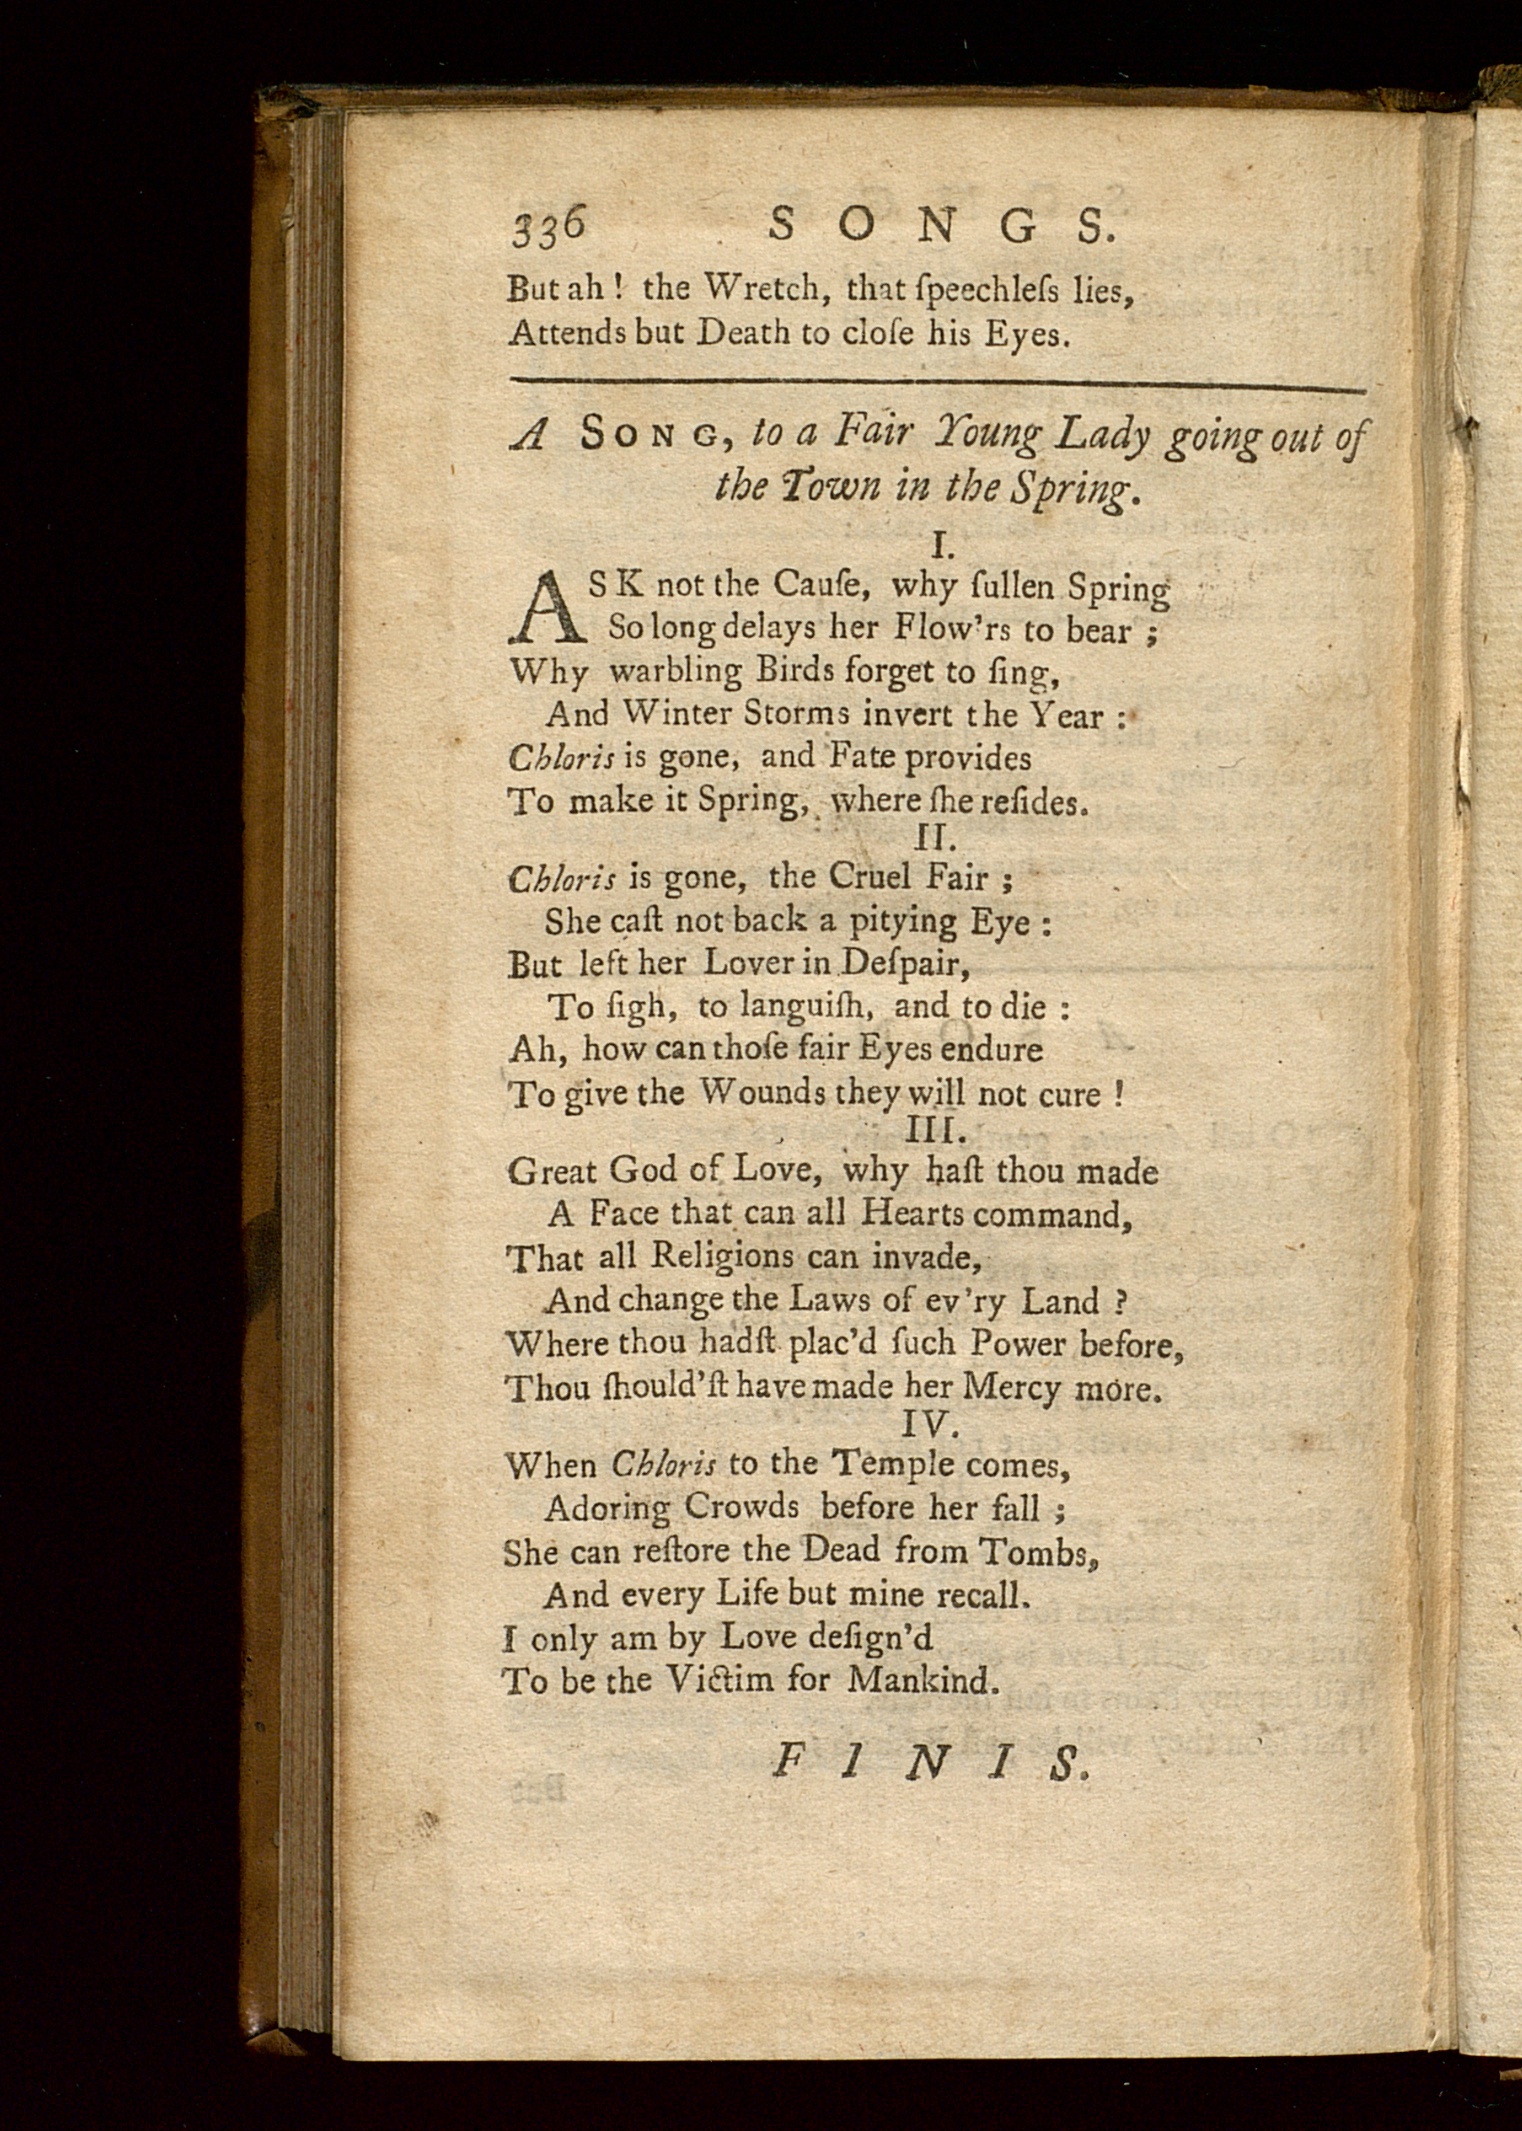 336 SONGS.
But ah! the Wretch, that ſpeechleſs lies,
Attends but Death to cloſe his Eyes.
A SONG, to a Fair Young Lady going out of
the Town in the Spring.
I.
ASK not the Cauſe, why ſullen Spring
So long delays her Flow'rs to bear;
Why warbling Birds forget to ſing,
And Winter Storms invert the Year:
Chloris is gone, and Fate provides
To make it Spring, where ſhe reſides.
II.
Chloris is gone, the Cruel Fair;
She caſt not back a pitying Eye:
But left her Lover in Deſpair,
To ſigh, to languiſh, and to die:
Ah, how can thoſe fair Eyes endure
To give the Wounds they will not cure!
III.
Great God of Love, why haſt thou made
A Face that can all Hearts command,
That all Religions can invade,
And change the Laws of ev'ry Land?
Where thou hadſt plac'd ſuch Power before,
Thou ſhould'ſt have made her Mercy more.
IV.
When Chloris to the Temple comes,
Adoring Crowds before her fall;
She can reſtore the Dead from Tombs,
And every Life but mine recall.
I only am by Love deſign'd
To be the Victim for Mankind.
FINIS.